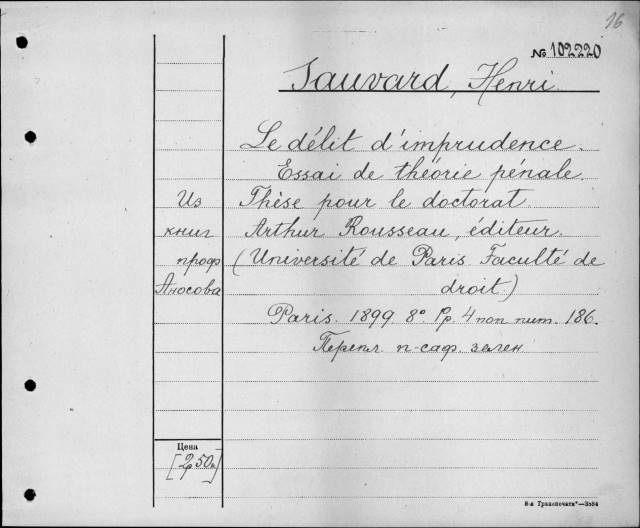 16
№ 102220
Sauvard, Henri.
Le délit d'imprudence.
Essai de théorie pénale.
Из Thèse pour le doctorat.
книг Arthur Rousseau, éditeur.
проф (Université de Paris. Faculté de
Аносова droit.)
Paris. 1899. 8° Pp. 4 non num. 186.
Перепл. п-саф. зелен.
Цена
[2р50к]
8-я Транспечать"—3554